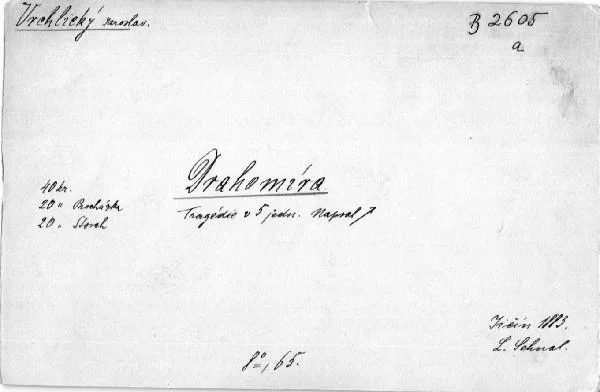 Vrchlický Jaroslav.
B 2605
a
Drahomíra
Tragédie v 5 jedn. Napsal
40 kr.
20 " Procházka
20 " Storch
Jičín 1883.
L. Schnal.
8°, 65.